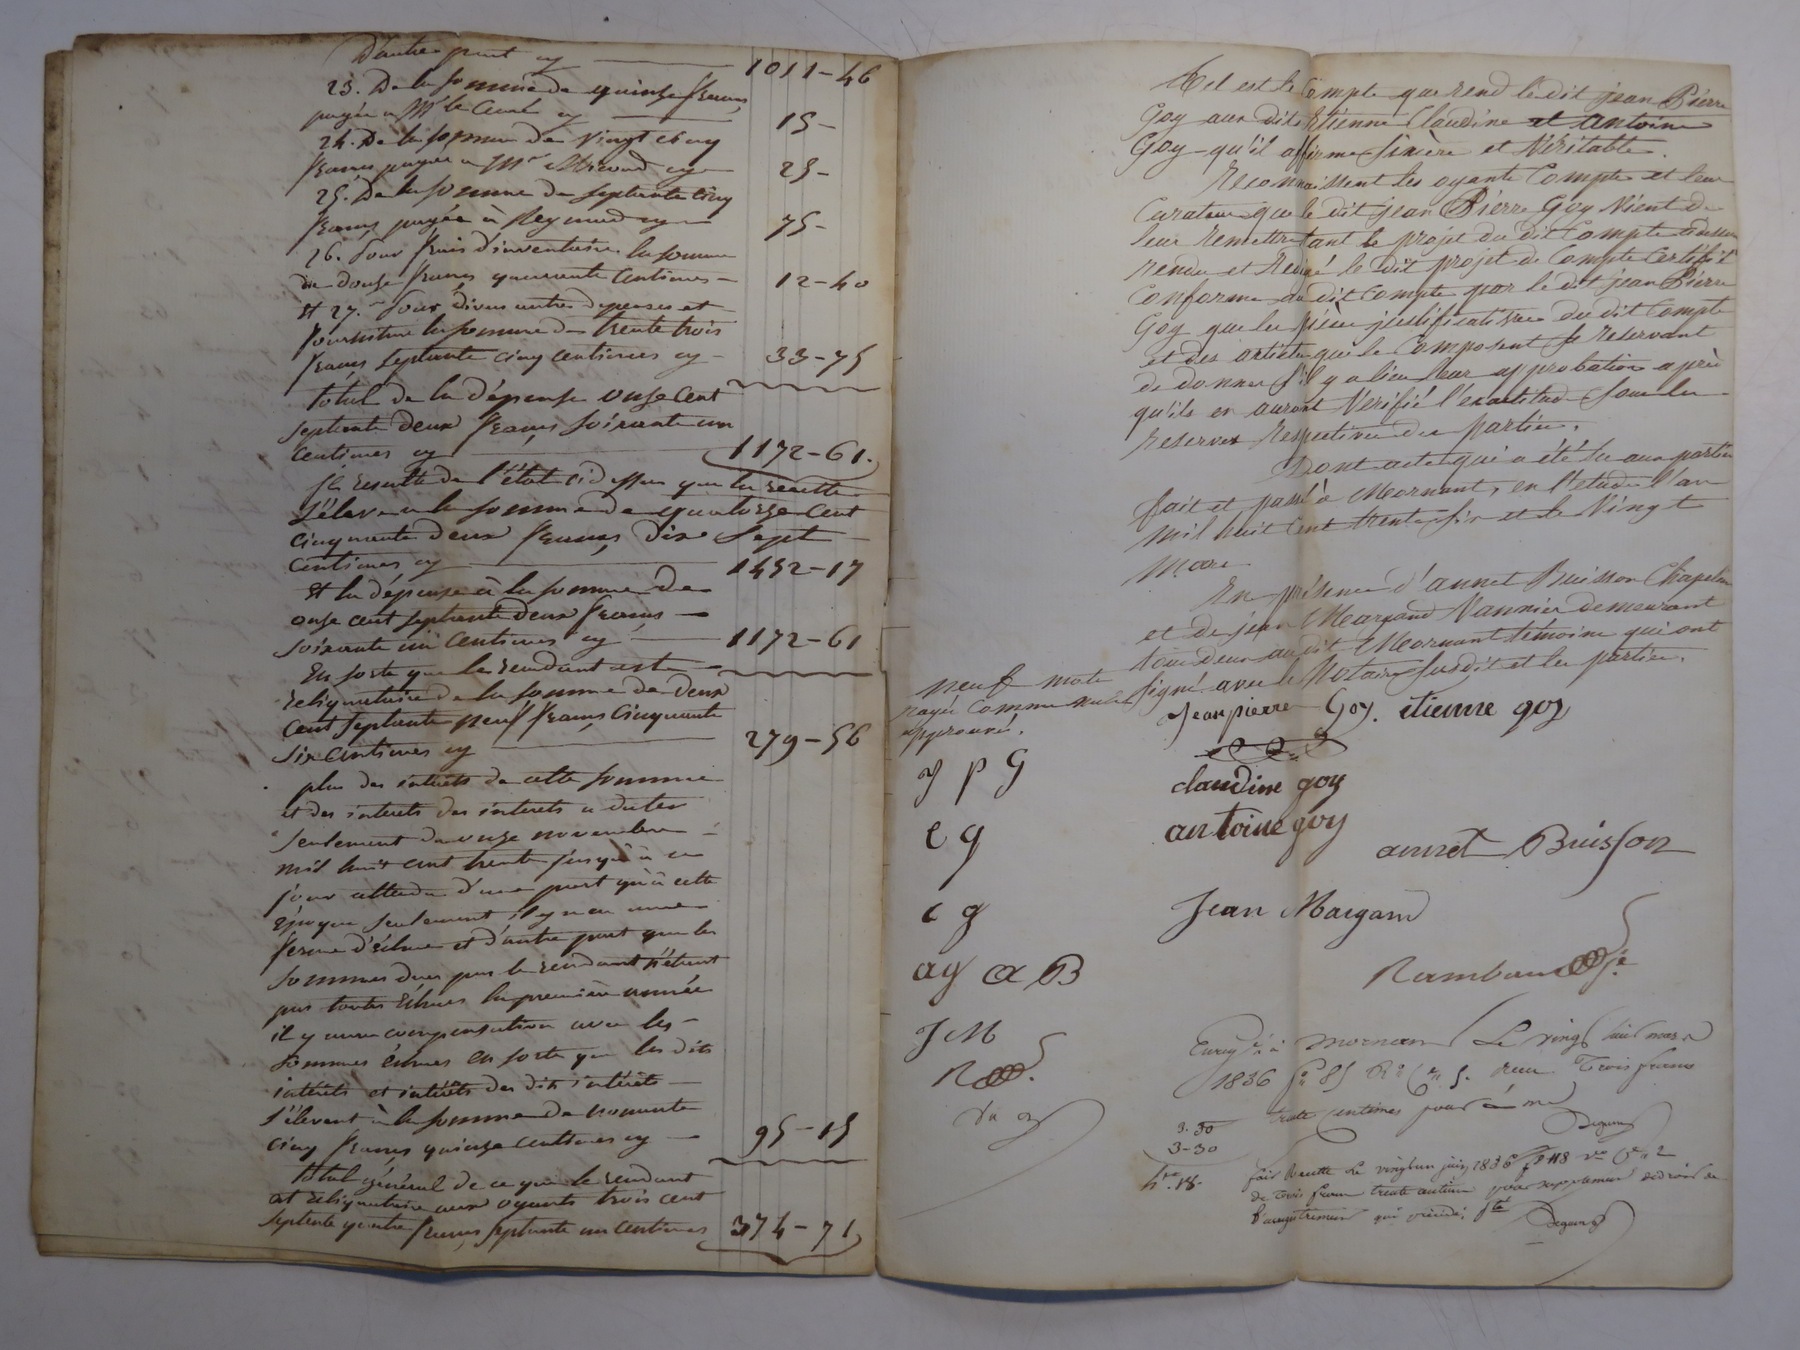 D'autre part cy 1011-46
23. De la somme de quinze francs
payée à Mr le Curé cy 15-
24. De la somme de vingt cinq
francs payée à Mr cy 25-
25. De la somme de septante cinq
francs payée à Reymond cy 75-
26. Pour frais d'inventaire la somme
de douze francs quarante centimes - 12-40
Et 27. Pour divers autres depenses et
fourniture la somme de trente trois
francs septante cinq centimes cy - 33-75
total de la dépense onze cent
septante deux francs soixante un
centimes cy 1172-61.
Il resulte de l'état ci dessus que la recette
s'élève à la somme de quatorze cent
cinquante deux francs dix sept
centimes cy 1452-17
Et la dépense à la somme de
onze cent septante deux francs
soixante un centimes cy 1172-61
En sorte que le rendant est
reliquataire de la somme de deux
cent septante neuf francs cinquante
six centimes cy 279-56
plus des intérêts de cette somme
et des intérêts des intérêts a dater
seulement du onze novembre
mil huit cent trente jusqu'à ce
jour attendu d'une part qu'à cette
époque seulement il y a eu une
ferme d'échue et d'autre part que les
sommes dues par le rendant n'étant
pas toutes échues la première année
il y aura compensation avec les
sommes échues en sorte que les dits
intérêts et intérêts des dits intérêts
s'élevent à la somme de nonante
cinq francs quinze centimes cy 95-15
total général de ce que le rendant
est reliquataire aux oyants trois cent
septante quatre francs septante un centimes 374-71
Tel est le Compte que rend le dit jean Pierre
Goy aux dits Etienne Claudine et antoine
Goy qu'il affirme sincère et Véritable.
Reconnaissent les oyants Compte et leur
Curateur que le dit jean Pierre Goy Vient de
leur remettre tant le projet du dit Compte
rendu et le dit projet de Compte Certifié
Conforme au dit Compte par le dit jean Pierre
Goy que les pièces justificatives du dit Compte
et des articles qui le Composent se reservant
de donner s'il y a lieu leur approbation après
qu'ils en auront Vérifié l'exactitude sous les
reserves respectives des parties.
Dont acte qui a été lu aux parties
fait et passé à Mornant, en l'etude l'an
mil huit cent trente six et le Vingt
Mars
En présence d'annet Buisson Chapelier
et de jean Margand Vannier demeurant
tous deux au dit Mornant témoins qui ont
signé avec le Notaire susdit et les parties.
neuf mots
rayés comme nuls
approuvé.
Jean pierre Goy. étienne goy
J p G
claudine goy
e g
antoine goy
annet Buisson
c g
Jean Margand
ag a B
Rambaud
J M
R
Enregistré à Mornant Le vingt huit mars
1836 fo 85 Ro Ce 5. reçu Trois francs
trente centimes pour
3.30
3-30
fait Recette Le vingt un juin 1836 fo 118 vo Ce 2
de Trois francs trente centimes pour supplement de droit de
l'enregistrement qui précède